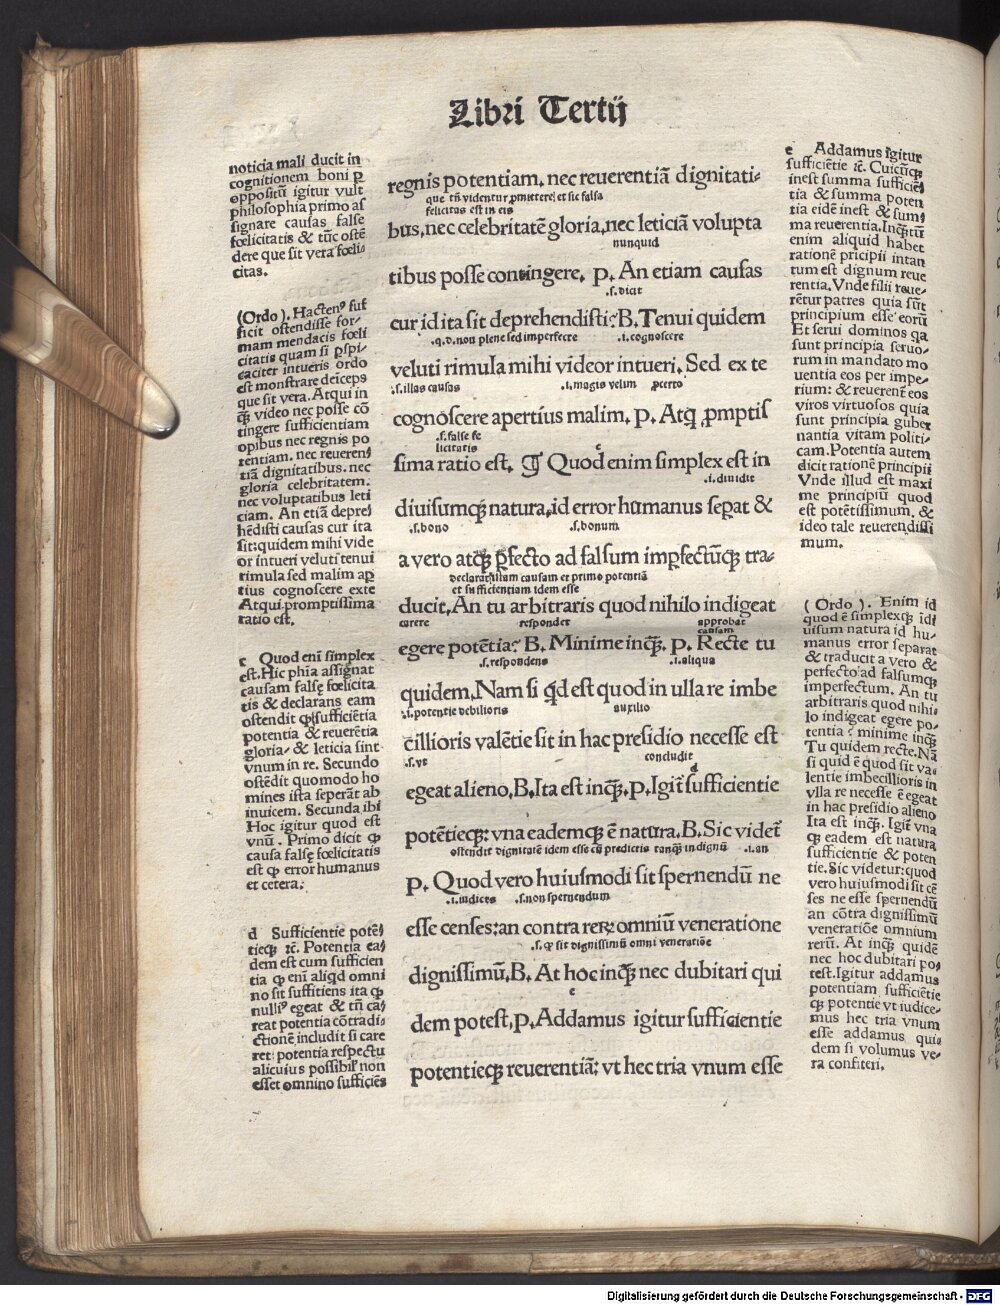 Libri Tertij
noticia mali ducit in
cognitionem boni p̲
oppositū igitur vult
philosophia primo as
signare causas false
fœlicitatis & tūc ostē
dere que sit vera fœli-
citas.
(Ordo). Hacten⁹ suf
ficit ostendisse for-
mam mendacis fœli
citatis quam si p̲spi-
caciter intueris ordo
est monstrare deiceps
que sit vera. Atqui in
qꝫ video nec posse cō
tingere sufficientiam
opibus nec regnis po
tentiam. nec reueren
tiā dignitatibus. nec
gloria celebritatem.
nec voluptatibus leti
ciam. An etiā depre
hēdisti causas cur ita
sit: quidem mihi vide
or intueri veluti tenui
rimula sed malim ap̲
tius cognoscere exte
Atqui promptissima
ratio est.
c Quod eni simplex
est. Hic phīa assignat
causam falsę fœlicita
tis & declarans eam
ostendit qꝫ sufficiētia
potentia & reuerētia
gloria & leticia sint
vnum in re. Secundo
ostēdit quomodo ho
mines ista seperāt ab
inuicem. Secunda ibi
Hoc igitur quod est
vnū. Primo dicit ꝙ
causa falsę fœlicitatis
est ꝙ error humanus
et cetera.
d Sufficientie potē
tieqꝫ ꝛc. Potentia ea
dem est cum sufficien
tia ꝙ eni aliqd omni
no sit suffitiens ita ꝙ
nulli⁹ egeat & tñ ca
reat potentia cōtradi-
ctionē includit si care
ret potentia respectu
alicuius possibil' non
esset omnino sufficiēs
regnis potentiam. nec reuerentiā dignitati-
que tñ videntur ꝓmittere: et sic falsa
felicitas est in eis
bus, nec celebritatē gloria, nec leticiā volupta
nunquid
tibus posse contingere. P. An etiam causas
.s. dicit
cur id ita sit deprehendisti? B. Tenui quidem
.q.d. non plene sed imperfecte .i. cognoscere
veluti rimula mihi videor intueri. Sed ex te
.s. illas causas .i. magis velim ꝓcerto
cognoscere apertius malim. P. Atq̄ ꝓmptis
.s. false fe
licitatis c
sima ratio est. ¶ Quod enim simplex est in
.i. diuidit
diuisumqꝫ natura, id error humanus sep̲at &
.s. bono .s. bonum
a vero atqꝫ p̲fecto ad falsum imp̲fectūqꝫ tra-
declarat illam causam et primo potentiā
et sufficientiam idem esse
ducit. An tu arbitraris quod nihilo indigeat
carere respondet approbat
causam
egere potētia? B. Minime inqꝫ. P. Recte tu
.s. respondens .i. aliqua
quidem. Nam si qd est quod in ulla re imbe
.i. potentie debilioris auxilio
cillioris valētie sit in hac presidio necesse est
.s. vt concludit
d
egeat alieno. B. Ita est inqꝫ. P. Igit̄ sufficientie
potētieqꝫ: vna eademqꝫ ē natura. B. Sic videt̄
ostendit dignitatē idem esse cū predictis tanqꝫ indignū .i. an
P. Quod vero huiusmodi sit spernendū ne
.i. iudices .s. non spernendum
esse censes: an contra rerꝫ omniū veneratione
.s. ꝙ sit dignissimū omni veneratiōe
dignissimū. B. At hoc inqꝫ nec dubitari qui
e
dem potest. P. Addamus igitur sufficientie
potentieqꝫ reuerentiā: vt hec tria vnum esse
e Addamus igitur
sufficiētie ꝛc. Cuicūqꝫ
inest summa sufficiē
tia & summa poten
tia eidē inest & sum
ma reuerentia. Inqꝫtū
enim aliquid habet
rationē pricipii intan
tum est dignum reue
rentia. Vnde filii reue-
rētur patres quia sūt
principium esse eorū
Et serui dominos qa
sunt principia seruo-
rum in mandato mo
uentia eos per impe-
rium: & reuerent̄ eos
viros virtuosos quia
sunt principia guber
nantia vitam politi-
cam. Potentia autem
dicit rationē principii
Vnde illud est maxi
me principiū quod
est potētissimum. &
ideo tale reuerendissi
mum.
(Ordo). Enim id
quod ē simplexqꝫ īdi
uisum natura id hu-
manus error separat
& traducit a vero &
perfecto ad falsumqꝫ
imperfectum. An tu
arbitraris quod nihi-
lo indigeat egere po-
tentia? minime inqꝫ
Tu quidem recte. Nā
si quid ē quod sit va-
lentie imbecillioris in
vlla re necesse ē egeat
in hac presidio alieno
Ita est inqꝫ. Igit̄ vna
qꝫ eadem est natura
sufficientie & poten
tie. Sic videtur: quod
vero huiusmodi sit cē
ses ne esse spernendū
an cōtra dignissimū
veneratiōe omnium
rerū. At inqꝫ quidē
nec hoc dubitari po
test. Igitur addamus
potentiam sufficiētie
qꝫ potentie vt iudice-
mus hec tria vnum
esse addamus qui-
dem si volumus ve-
ra confiteri.
Digitalisierung gefördert durch die Deutsche Forschungsgemeinschaft - DFG